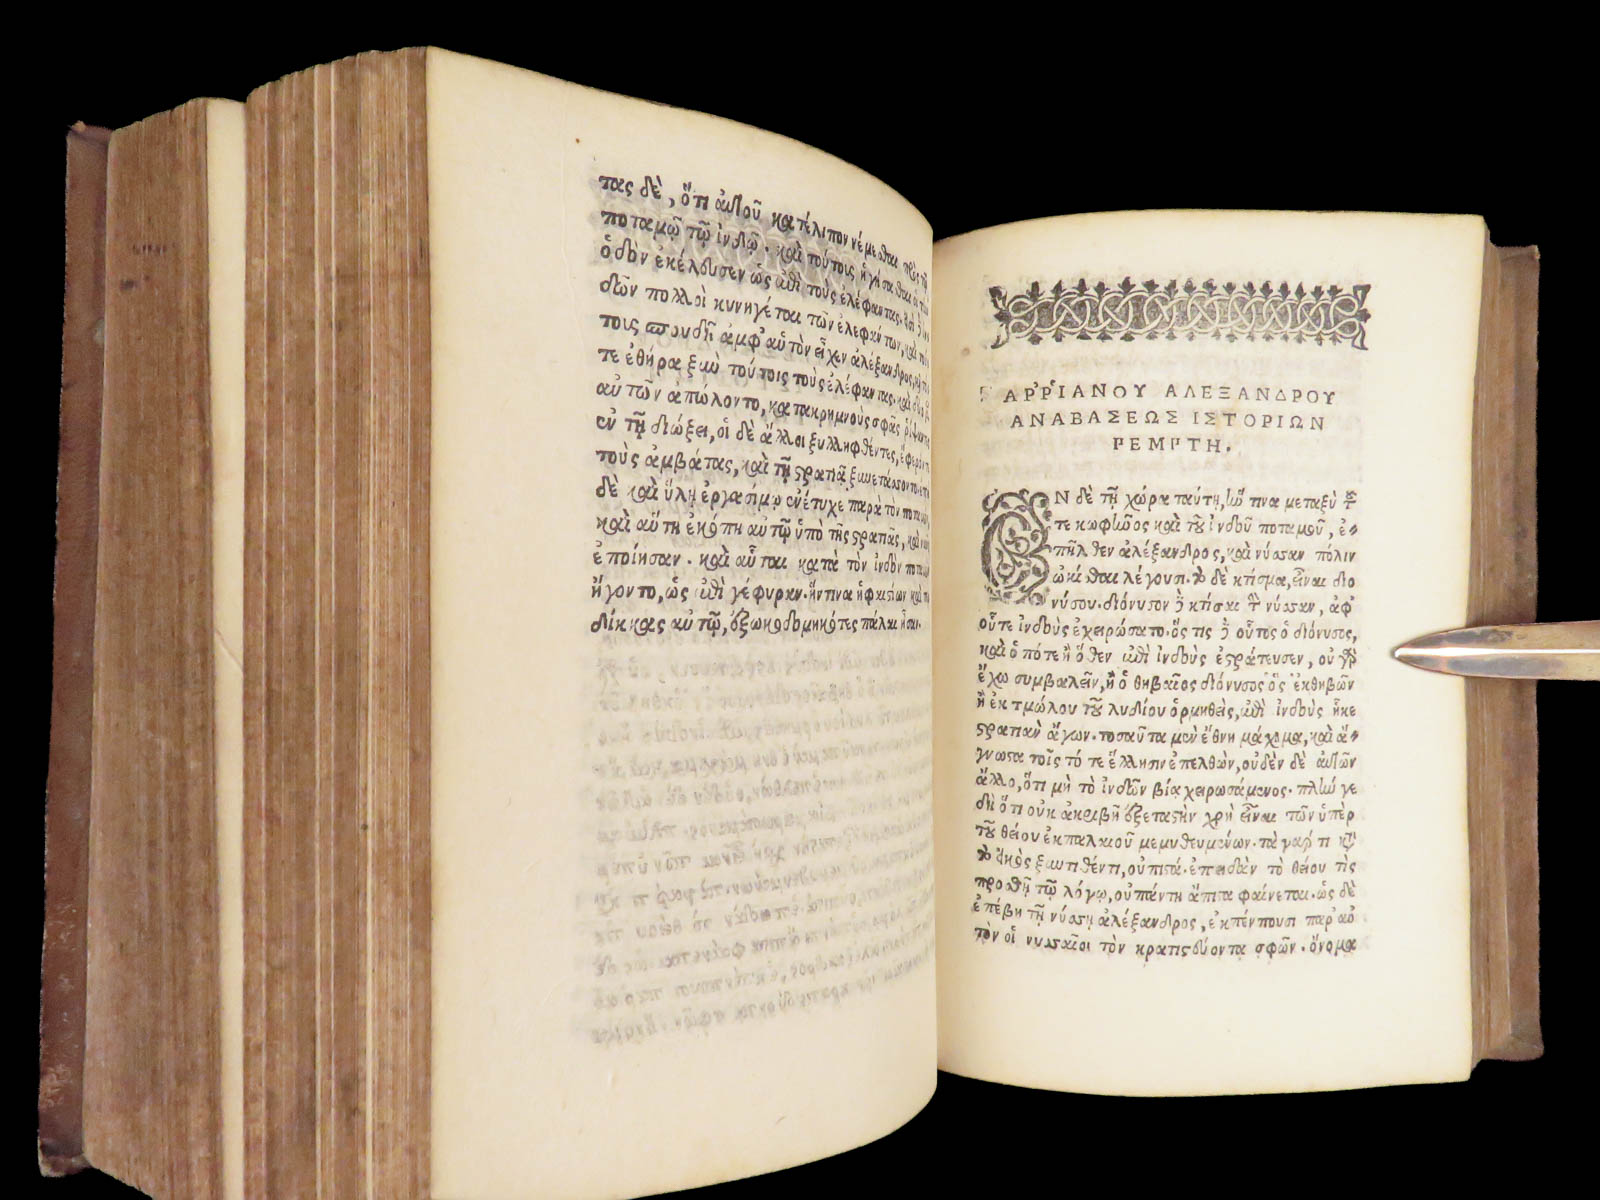 τας δὲ, ὅτι αὐτοῦ κατέλιπον νέμεσθαι πρὸς τῷ
ποταμῷ τῷ ἰνδῷ. καὶ τούτοις ἡγήσασθαι οἱ τὴν
ὁδὸν ἐκέλευσεν ὡς ἐπὶ τοὺς ἐλέφαντας.
δῶν πολλοὶ κυνηγέται τῶν ἐλεφάντων, καὶ
τοις σπουδῇ ἀμφ' αὑτὸν εἶχεν ἀλέξανδρος,
τε ἐθήρα ξὺν τούτοις τοὺς ἐλέφαντας. καὶ δύο
αὐτῶν ἀπώλοντο, κατὰ κρημνοὺς σφᾶς ῥίψαντες
ἐν τῇ διώξει, οἱ δὲ ἄλλοι ξυλληφθέντες, ἔφερόν
τοὺς ἀμβάτας, καὶ τῇ στρατιᾷ ξυνετάσσοντο.
δὲ καὶ ὕλῃ ἐργασίμῳ ἐνέτυχε παρὰ τὸν ποταμόν,
καὶ αὕτη ἐκόπη αὐτῷ ὑπὸ τῆς στρατιᾶς, καὶ ναῦς
ἐποίησαν. καὶ αὗται κατὰ τὸν ἰνδὸν ποταμὸν
ἤγοντο, ὡς ἐπὶ γέφυραν. ἥν τινα ἡφαιστίων καὶ
δίκκας αὐτῷ, ἐξῳκοδομηκότες πάλαι ἦσαν.
ΑΡΡΙΑΝΟΥ ΑΛΕΞΑΝΔΡΟΥ
ΑΝΑΒΑΣΕΩΣ ΙΣΤΟΡΙΩΝ
ΠΕΜΠΤΗ.
ΕΝ δὲ τῇ χώρᾳ ταύτῃ, ἥν τινα μεταξὺ τοῦ
τε κωφῆνος καὶ τοῦ ἰνδοῦ ποταμοῦ, ἐ-
πῆλθεν ἀλέξανδρος, καὶ νύσσαν πόλιν
ᾠκίσθαι λέγουσι. τὸ δὲ κτίσμα, εἶναι διο
νύσου. διόνυσον δὲ κτίσαι τὴν νύσσαν, ἀφ'
οὗτε ἰνδοὺς ἐχειρώσατο. ὅς τις δὲ οὗτος ὁ διόνυσος,
καὶ ὁπότε ἢ ὅθεν ἐπὶ ἰνδοὺς ἐστράτευσεν, οὐ γὰρ
ἔχω συμβαλεῖν, ἢ ὁ θηβαῖος διόνυσος ὃς ἐκ θηβῶν
ἢ ἐκ τμώλου τοῦ λυδίου ὁρμηθεὶς, ἐπὶ ἰνδοὺς ἧκε
στρατιὰν ἄγων. τοσαῦτα μὲν ἔθνη μάχιμα, καὶ ἄ-
γνωστα τοῖς τότε ἕλλησιν ἐπελθὼν, οὐδὲν δὲ αὐτῶν
ἄλλο, ὅτι μὴ τὸ ἰνδῶν βίᾳ χειρωσάμενος. πλήν γε
δὴ ὅτι οὐκ ἀκριβῆ ἐξεταστὴν χρὴ εἶναι τῶν ὑπὲρ
τοῦ θείου ἐκ παλαιοῦ μεμυθευμένων. τὰ γάρ τι κατὰ
τὸ εἰκὸς ξυντιθέντι, οὐ πιστά. ἐπειδὰν τὸ θεῖόν τις
προσθῇ τῷ λόγῳ, οὐ πάντῃ ἄπιστα φαίνεται. ὡς δὲ
ἐπέβη τῇ νύσσῃ ἀλέξανδρος, ἐκπέμπουσι παρ' αὐ
τὸν οἱ νυσσαῖοι τὸν κρατιστεύοντα σφῶν. ὄνομα